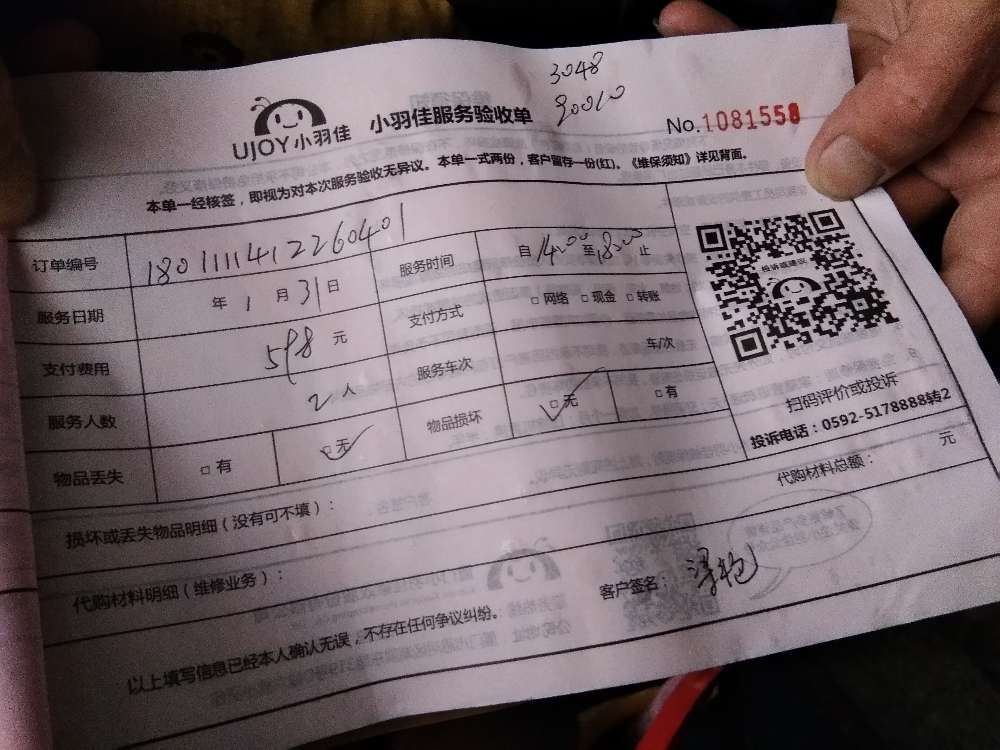 3048
90010
UJOY小羽佳 小羽佳服务验收单 No.1081558
本单一经核签，即视为对本次服务验收无异议。本单一式两份，客户留存一份(红)。《维保须知》详见背面。
订单编号 18011114122260401 服务时间 自14:00至18:00止
服务日期 年1月31日 支付方式 □网络 □现金 □转账
支付费用 598元 服务车次 车/次
服务人数 2人 物品损坏 □无 □有
物品丢失 □有 □无
投诉或建议
扫码评价或投诉
投诉电话：0592-5178888转2
损坏或丢失物品明细（没有可不填）：
代购材料明细（维修业务）： 代购材料总额： 元
以上填写信息已经本人确认无误，不存在任何争议纠纷。 客户签名：